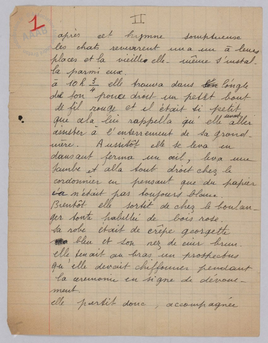 1
II
après cet hymne somptueux
les chats revinrent un a un à leurs
places et la vieille elle même s'instal
la parmi eux.
à 10h 3/4 elle trouva dans l'ongle
de son pouce droit un petit bout
de fil rouge et il était si petit
que cela lui rappella qu'elle allait
assister à l'enterrement de sa grand
mère. Aussitôt elle se leva en
dansant ferma un œil, leva une
jambe et alla tout droit chez le
cordonnier en pensant que du papier
n'était pas toujours blanc
Bientôt elle sortit de chez le boulan
ger toute habillée de bois rose
sa robe était de crêpe georgette
bleu et son nez de mer brun.
elle tenait au bras un prospectus
qu'elle devait chiffonner pendant
la cérémonie en signe de dévoue-
ment.
elle partit donc, accompagnée